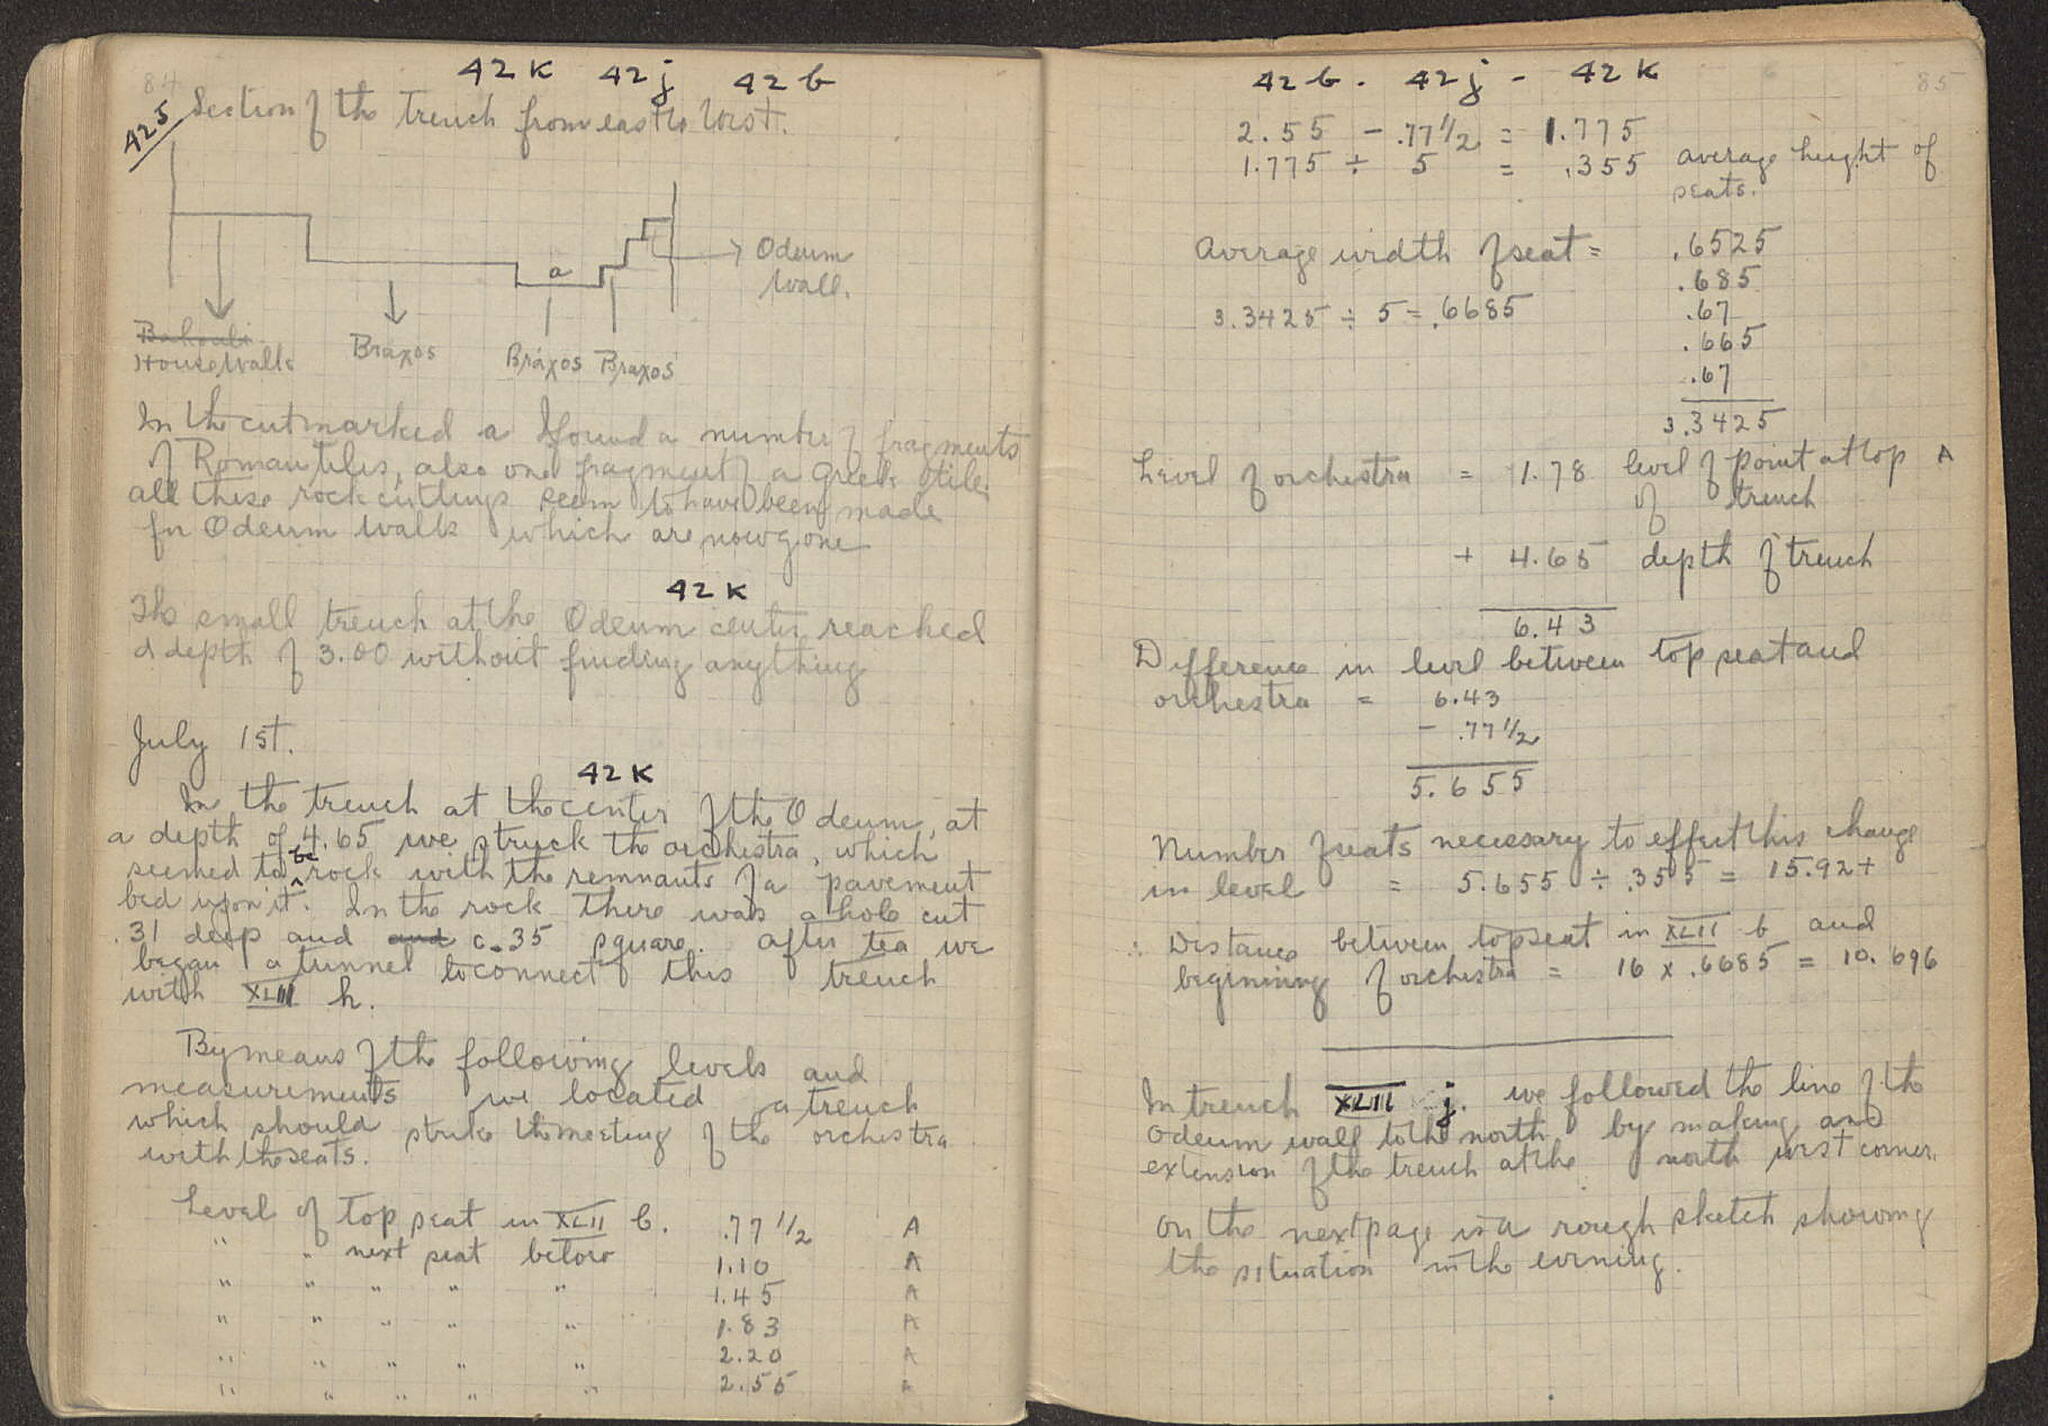 84
42 K 42 j 42 b
A25
Section of the trench from east to West.
a
Odeum
Wall.
Bakouli
House Walls
Braxos
Bráxos
Braxos
In the cut marked a I found a number of fragments
of Roman tiles, also one fragment of a Greek tile.
all these rock cuttings seem to have been made
for Odeum walls which are now gone
42 K
The small trench at the Odeum center reached
a depth of 3.00 without finding anything
July 1st.
42 K
In the trench at the center of the Odeum, at
a depth of 4.65 we struck the orchestra, which
seemed to be rock with the remnants of a pavement
bed upon it. In the rock there was a hole cut
.31 deep and and c. 35 square. After tea we
began a tunnel to connect this trench
with XLIII h.
By means of the following levels and
measurements we located a trench
which should strike the meeting of the orchestra
with the seats.
Level of top seat in XLII b. .77 1/2 A
" " next seat below 1.10 A
" " " " " 1.45 A
" " " " " 1.83 A
" " " " " 2.20 A
" " " " " 2.55 A
85
42 b - 42 j - 42 K
2.55 - .77 1/2 = 1.775
1.775 ÷ 5 = .355 average height of
seats.
Average width of seat = .6525
.685
3.3425 ÷ 5 = .6685 .67
.665
.67
3.3425
Level of orchestra = 1.78 level of point at top A
of trench
+ 4.65 depth of trench
6.43
Difference in level between top seat and
orchestra = 6.43
- .77 1/2
5.655
Number of seats necessary to effect this change
in level = 5.655 ÷ .355 = 15.92+
∴ Distance between top seat in XLII b and
begining of orchestra = 16 x .6685 = 10.696
In trench XLII j. we followed the line of the
Odeum wall to the north by making and
extension of the trench at the north west corner.
On the next page is a rough sketch showing
the situation in the evening.